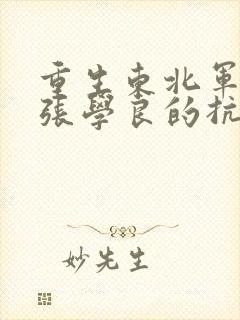 重生東北軍
張學良的抗
妙先生